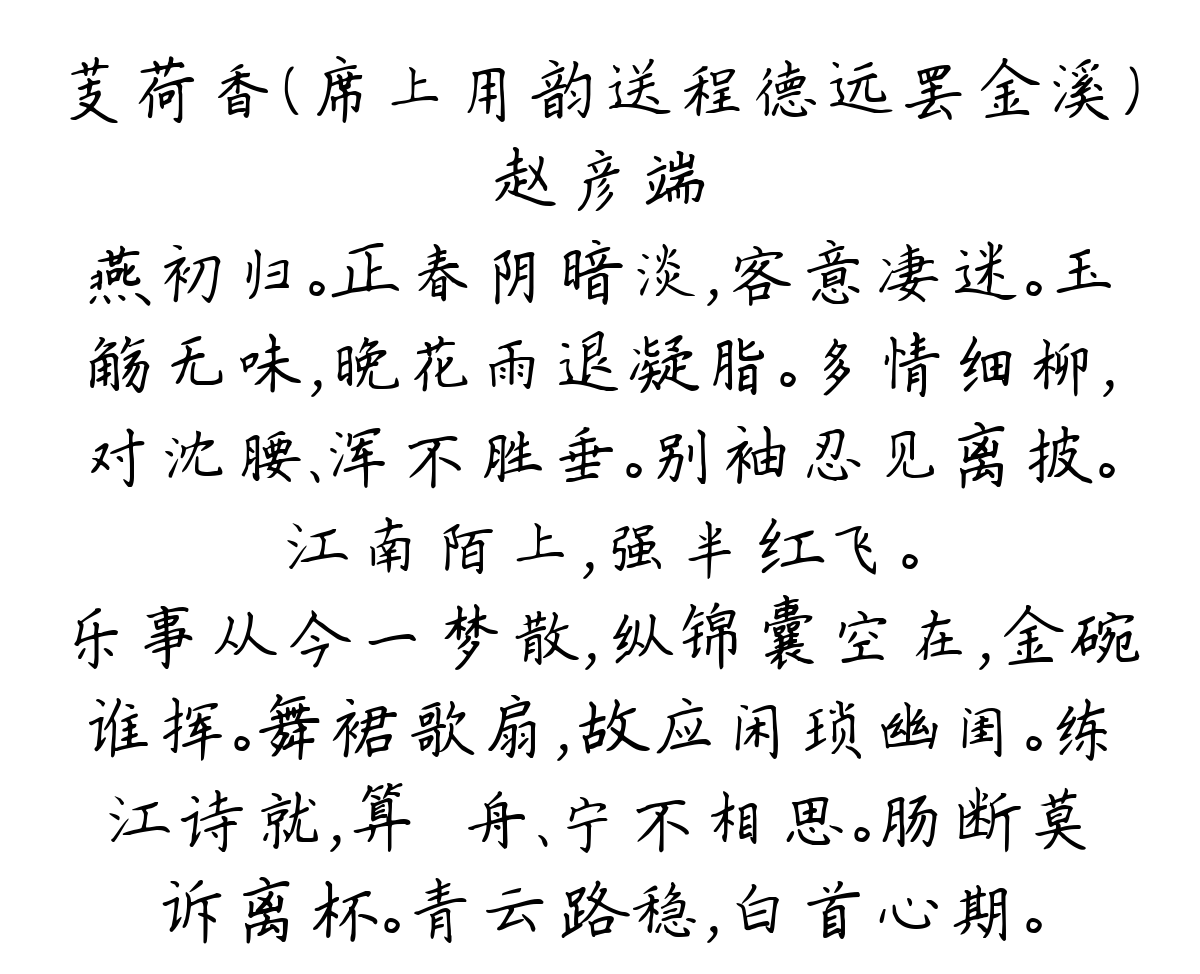 芰荷香(席上用韵送程德远罢金溪)
赵彦端
燕初归。正春阴暗淡,客意凄迷。玉
觞无味,晚花雨退凝脂。多情细柳,
对沈腰、浑不胜垂。别袖忍见离披。
江南陌上,强半红飞。
乐事从今一梦散,纵锦囊空在,金碗
谁挥。舞裙歌扇,故应闲琐幽闺。练
江诗就,算 舟、宁不相思。肠断莫
诉离杯。青云路稳,白首心期。